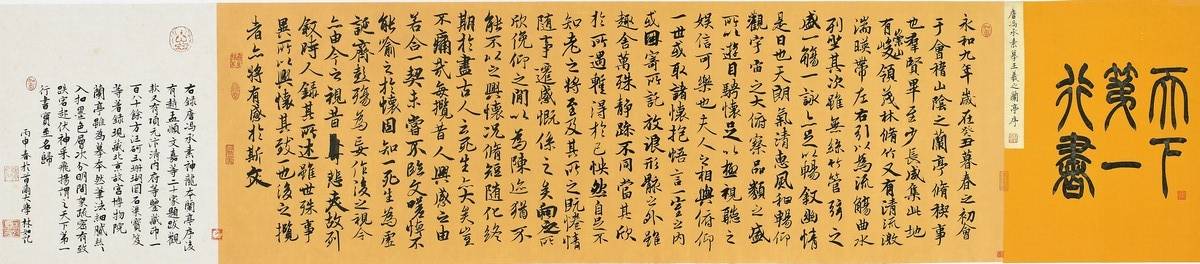 天下
第一
行書
唐馮承素摹王羲之蘭亭序
永和九年歲在癸丑暮春之初會
于會稽山陰之蘭亭脩稧事
也羣賢畢至少長咸集此地
有崇山峻領茂林脩竹又有清流激
湍暎帶左右引以為流觴曲水
列坐其次雖無絲竹管弦之
盛一觴一詠亦足以暢敘幽情
是日也天朗氣清惠風和暢仰
觀宇宙之大俯察品類之盛
所以遊目騁懷足以極視聽之
娛信可樂也夫人之相與俯仰
一世或取諸懷抱悟言一室之內
或因寄所託放浪形骸之外雖
趣舍萬殊靜躁不同當其欣
於所遇暫得於己怏然自足不
知老之將至及其所之既惓情
隨事遷感慨係之矣向之所
欣俛仰之閒以為陳迹猶不
能不以之興懷況脩短隨化終
期於盡古人云死生亦大矣豈
不痛哉每攬昔人興感之由
若合一契未嘗不臨文嗟悼不
能喻之於懷固知一死生為虛
誕齊彭殤為妄作後之視今
亦由今之視昔悲夫故列
敘時人錄其所述雖世殊事
異所以興懷其致一也後之攬
者亦將有感於斯文
右錄唐馮承素神龍本蘭亭序後
有趙孟頫文嘉等二十家題跋觀
款又有項元汴清內府等鑒藏印一
百八十餘方汪砢玉珊瑚網石渠寶笈
等著錄現藏北京故宮博物院
蘭亭雖為摹本然筆法細膩絲絲
入扣墨色層次分明架疏密有致
跌宕起伏神采飛揚謂之天下第一
行書實至名歸
丙申春於大學林記